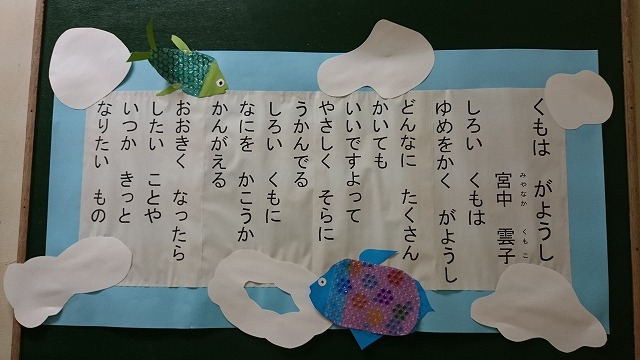 くもは がようし
宮中 雲子
みやなか くもこ
しろい くもは
ゆめをかく がようし
どんなに たくさん
かいても
いいですよって
やさしく そらに
うかんでる
しろい くもに
なにを かこうか
かんがえる
おおきく なったら
したい ことや
いつか きっと
なりたい もの